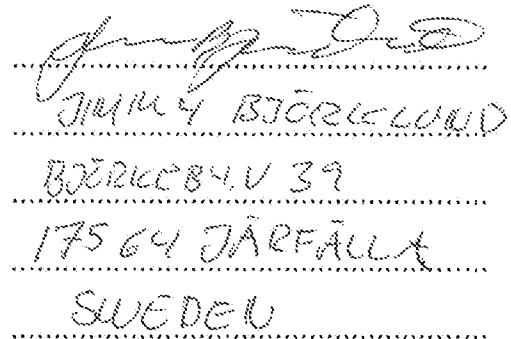 JIMMY BJÖRKLUND
BJÖRKEBY.V 39
175 64 JÄRFÄLLA
SWEDEN